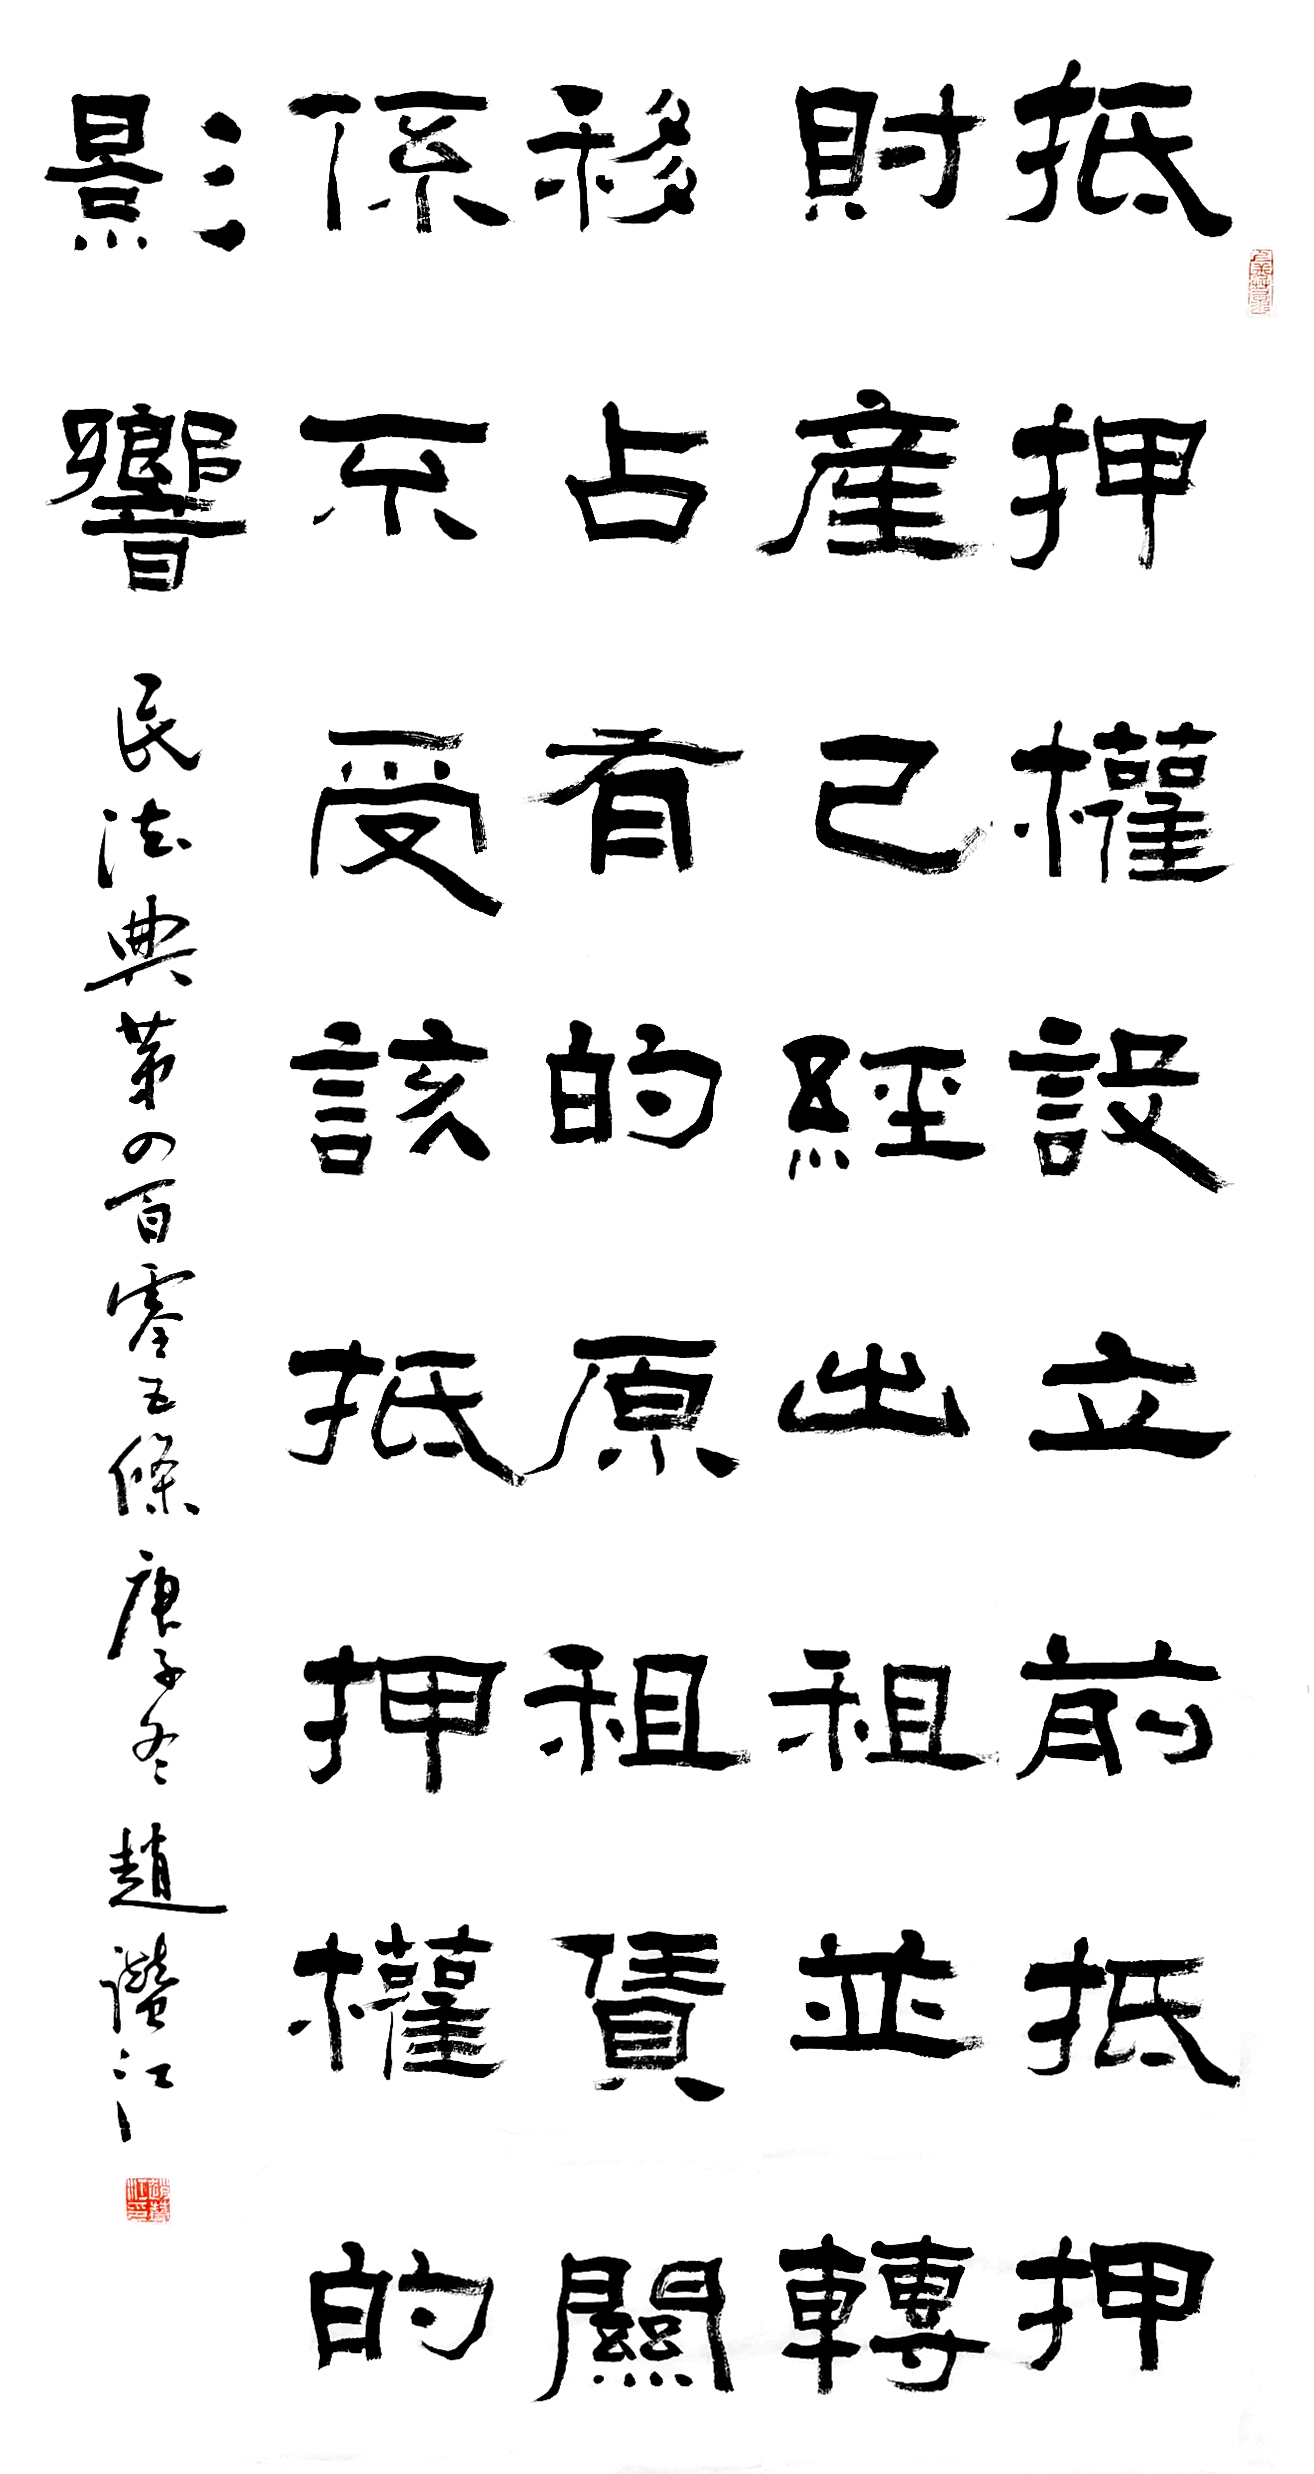 抵押權設立前抵押
財產已經出租並轉
移占有的原租賃關
係不受該抵押權的
影響
民法典第四百零五條庚子冬趙讚江